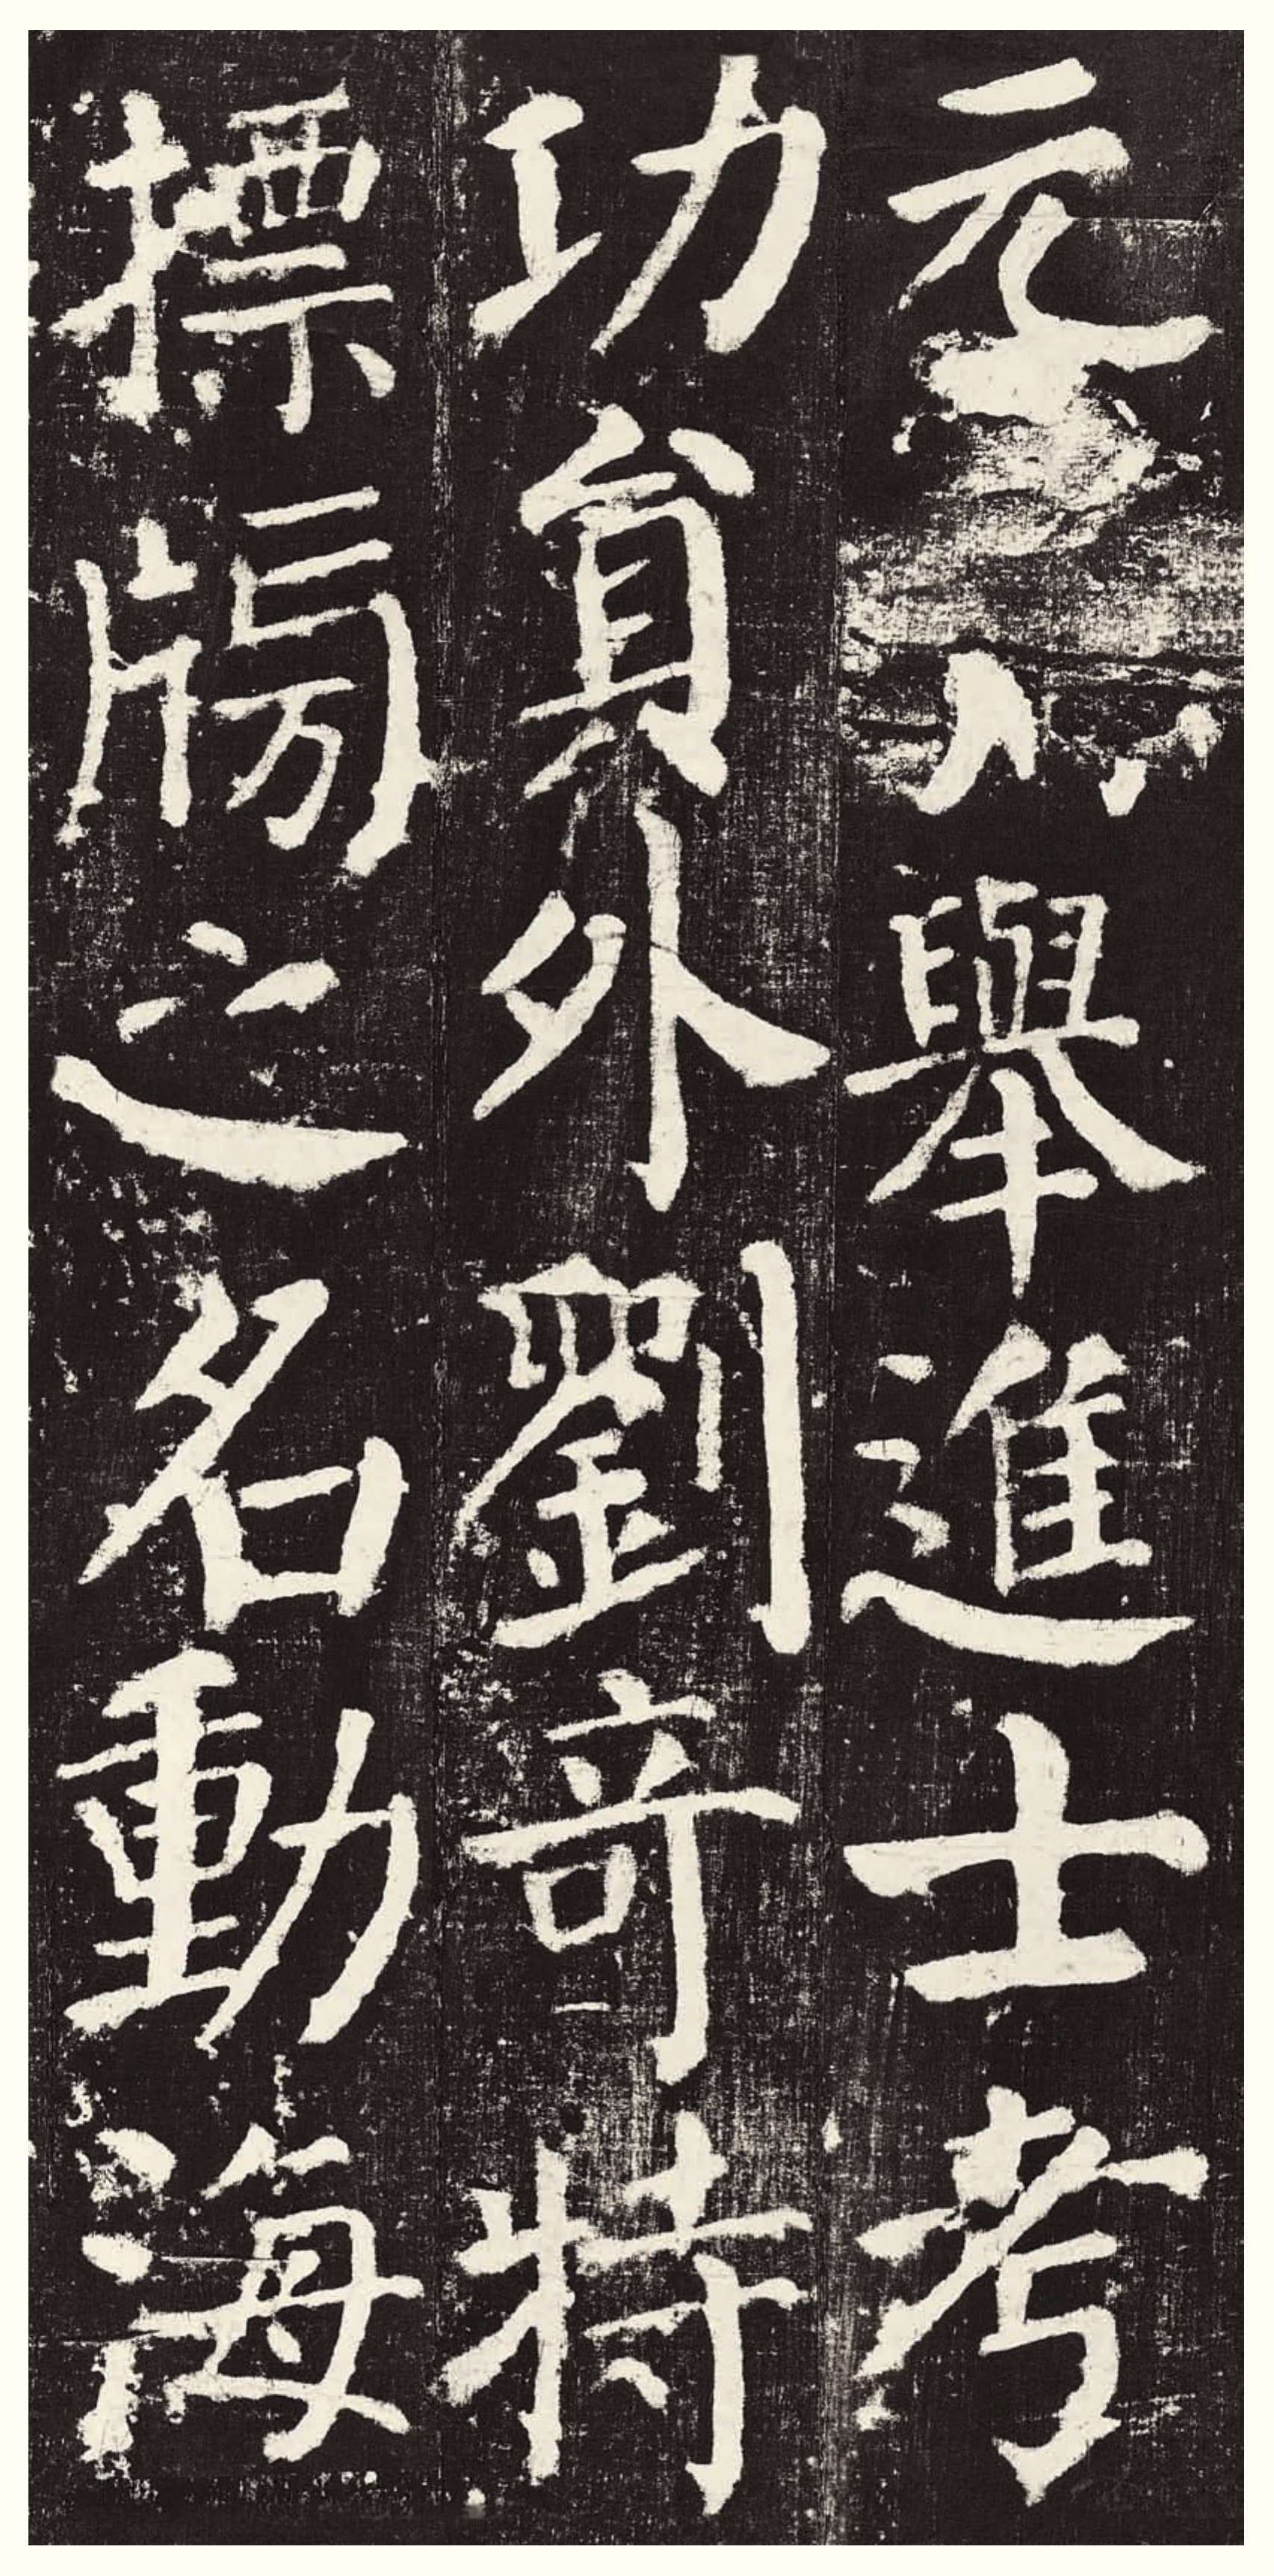 元舉進士考
功員外劉奇特
標牓之名動海